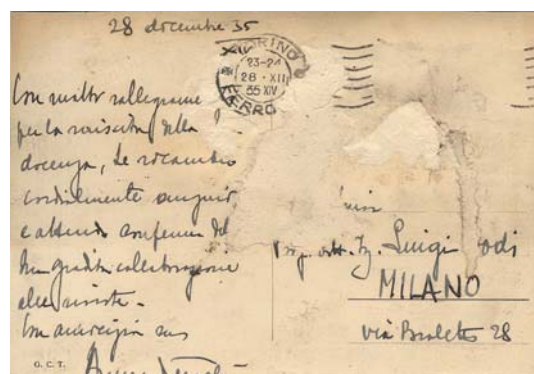 28 dicembre 35
TORINO
23-24
28·XII
35 XIV
FERRO
Con molti rallegram
per la riuscita della
docenza, Le ricambio
cordialmente auguri
e attendo conferma del
Sua gradita collaborazione
alla rivista -
Con amicizia suo
Ing. Luigi odi
MILANO
via Broletto 28
G. C. T.